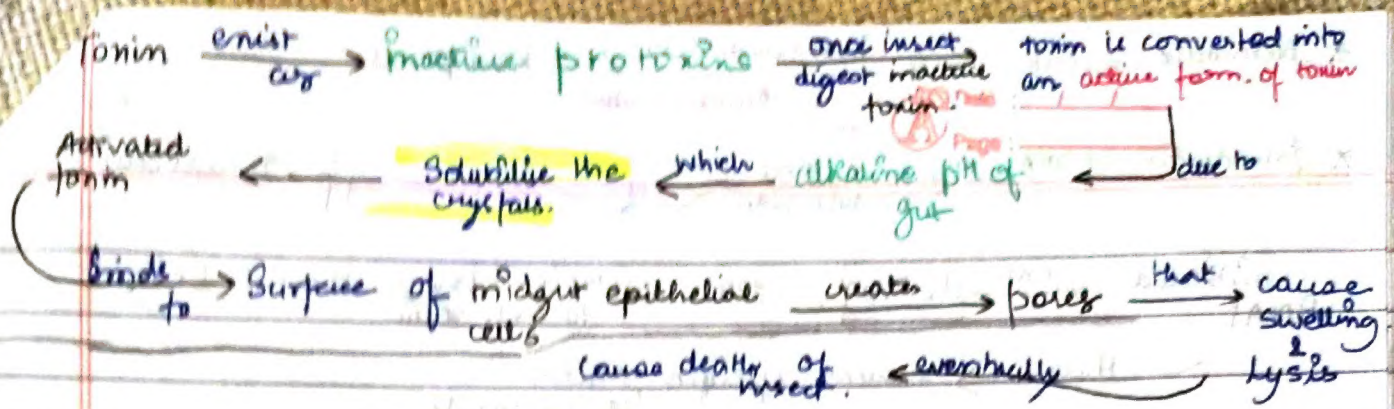 Toxin exist as → inactive protoxins once insect digest inactive toxin. → toxin is converted into an active form. of toxin
Date :
Page :
due to ← alkaline pH of gut
which ← Solubilise the crystals.
← Activated toxin
binds to → Surface of midgut epithelial cells creates → pores that → cause swelling & Lysis
eventually ← cause death of insect.